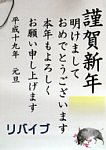 謹賀新年
明けまして
おめでとうございます
本年もよろしく
お願い申し上げます
平成十九年 元旦
リバイブ